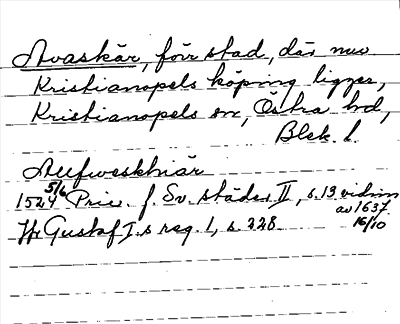 Avaskär, förr stad, där nuv
Kristianopels köping ligger,
Kristianopels sn, Östra hd,
Blek. l.
Auffweskhiär
1524 5/6 Priv. f. Sv. städer II, s. 13 vidim
av 1637 16/10
Gustaf I:s reg. 1, s. 228